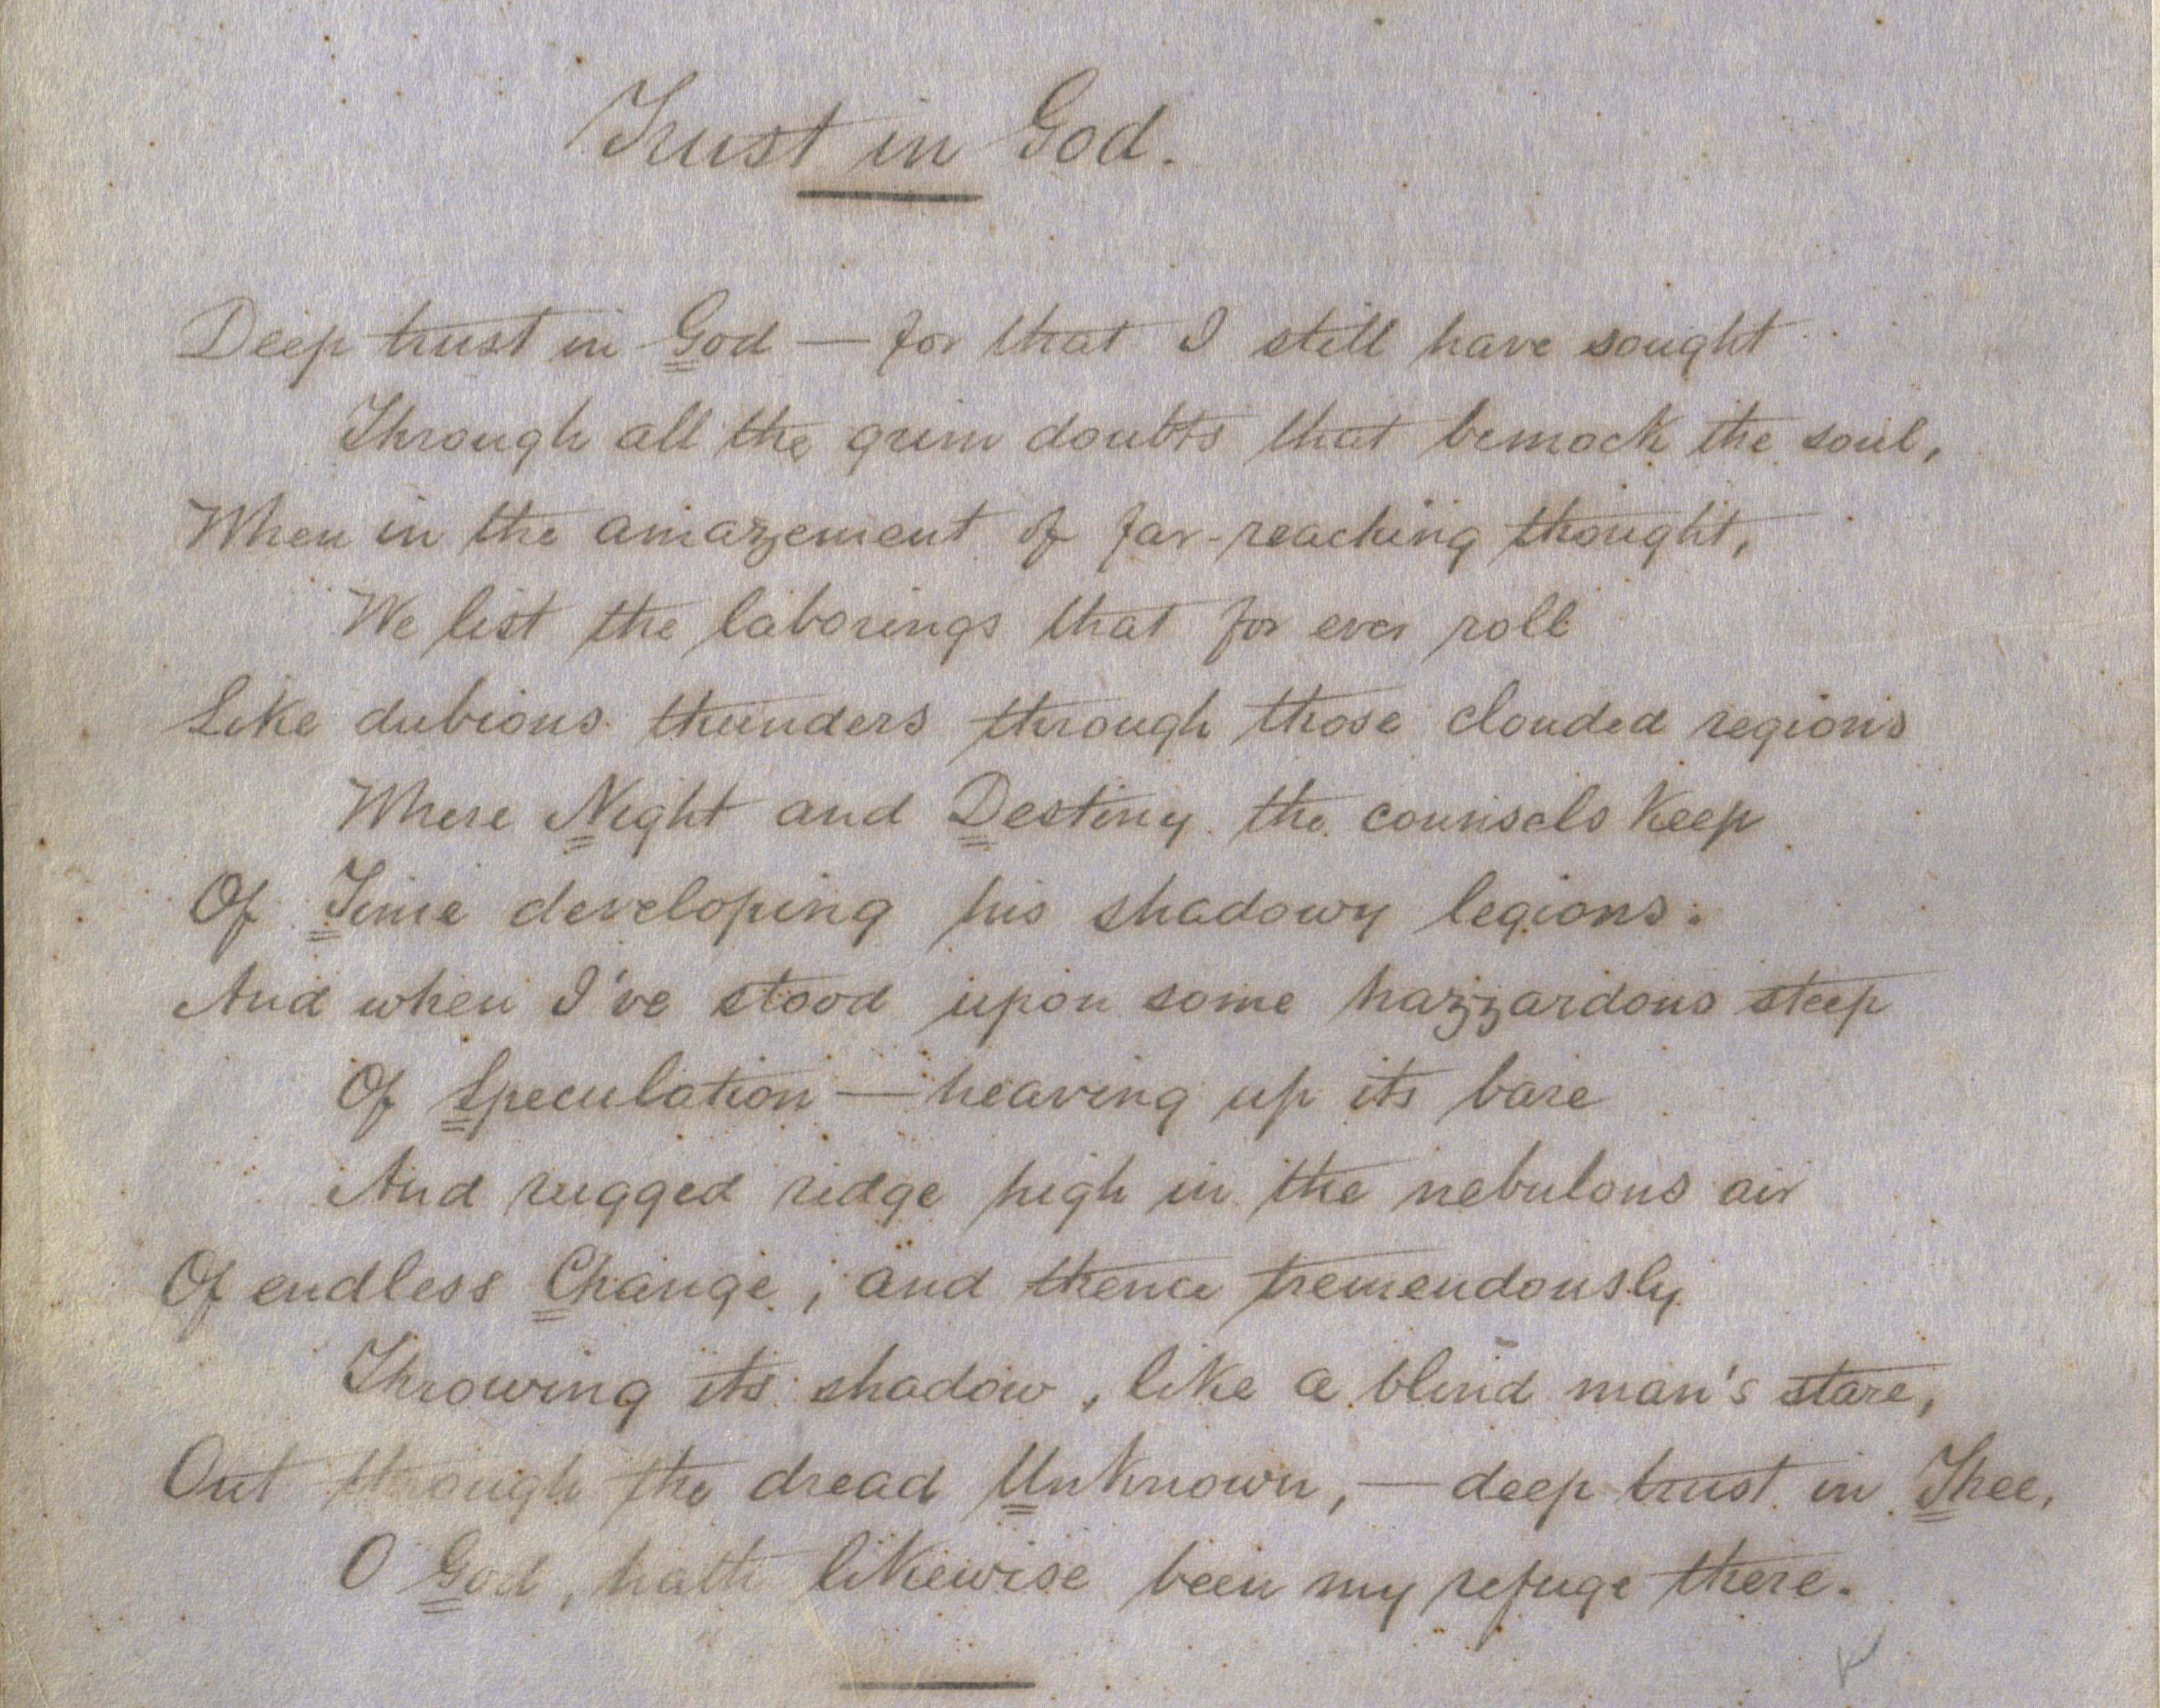 Trust in God.
Deep trust in God — for that I still have sought
Through all the grim doubts that bemock the soul,
When in the amazement of far-reaching thought,
We list the laborings that for ever roll
Like dubious thunders through those clouded regions
Where Night and Destiny the counsels keep
Of Time developing his shadowy legions:
And when I've stood upon some hazzardous steep
Of Speculation — heaving up its bare
And rugged ridge high in the nebulous air
Of endless Change; and thence tremendously
Throwing its shadow, like a blind man's stare,
Out through the dread Unknown, — deep trust in Thee,
O God, hath likewise been my refuge there.